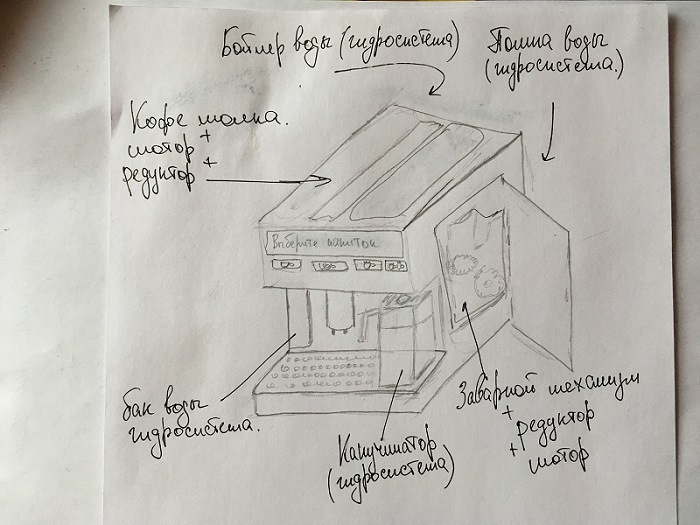 Бойлер воды (гидросистема)
Помпа воды
(гидросистема.)
Кофе молка.
+
мотор +
редуктор
Выберите напиток
бак воды
гидросистема.
Капучинатор
(гидросистема)
Заварной механизм
+
редуктор
+ мотор